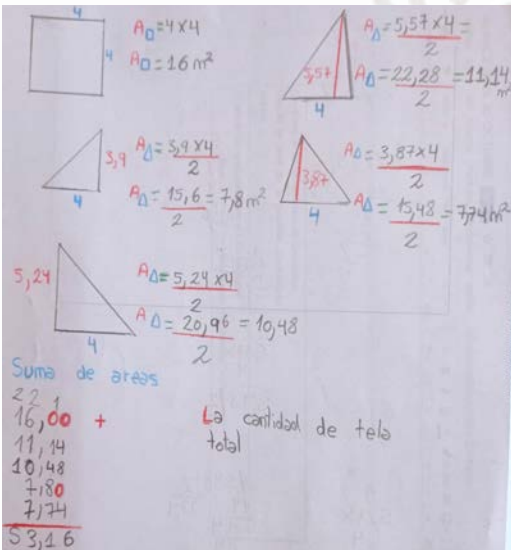 4
4
A□=4x4
A□=16 m²
5,57
4
A△=5,57x4=
2
A△=22,28=11,14 m²
2
3,9
4
A△=3,9x4
2
A△=15,6=7,8m²
2
3,87
4
A△=3,87x4
2
A△=15,48=7,74m²
2
5,24
4
A△=5,24x4
2
A△=20,96=10,48
2
Suma de areas
2 2 1
16,00 +
11,14
10,48
7,80
7,74
53,16
La cantidad de tela
total